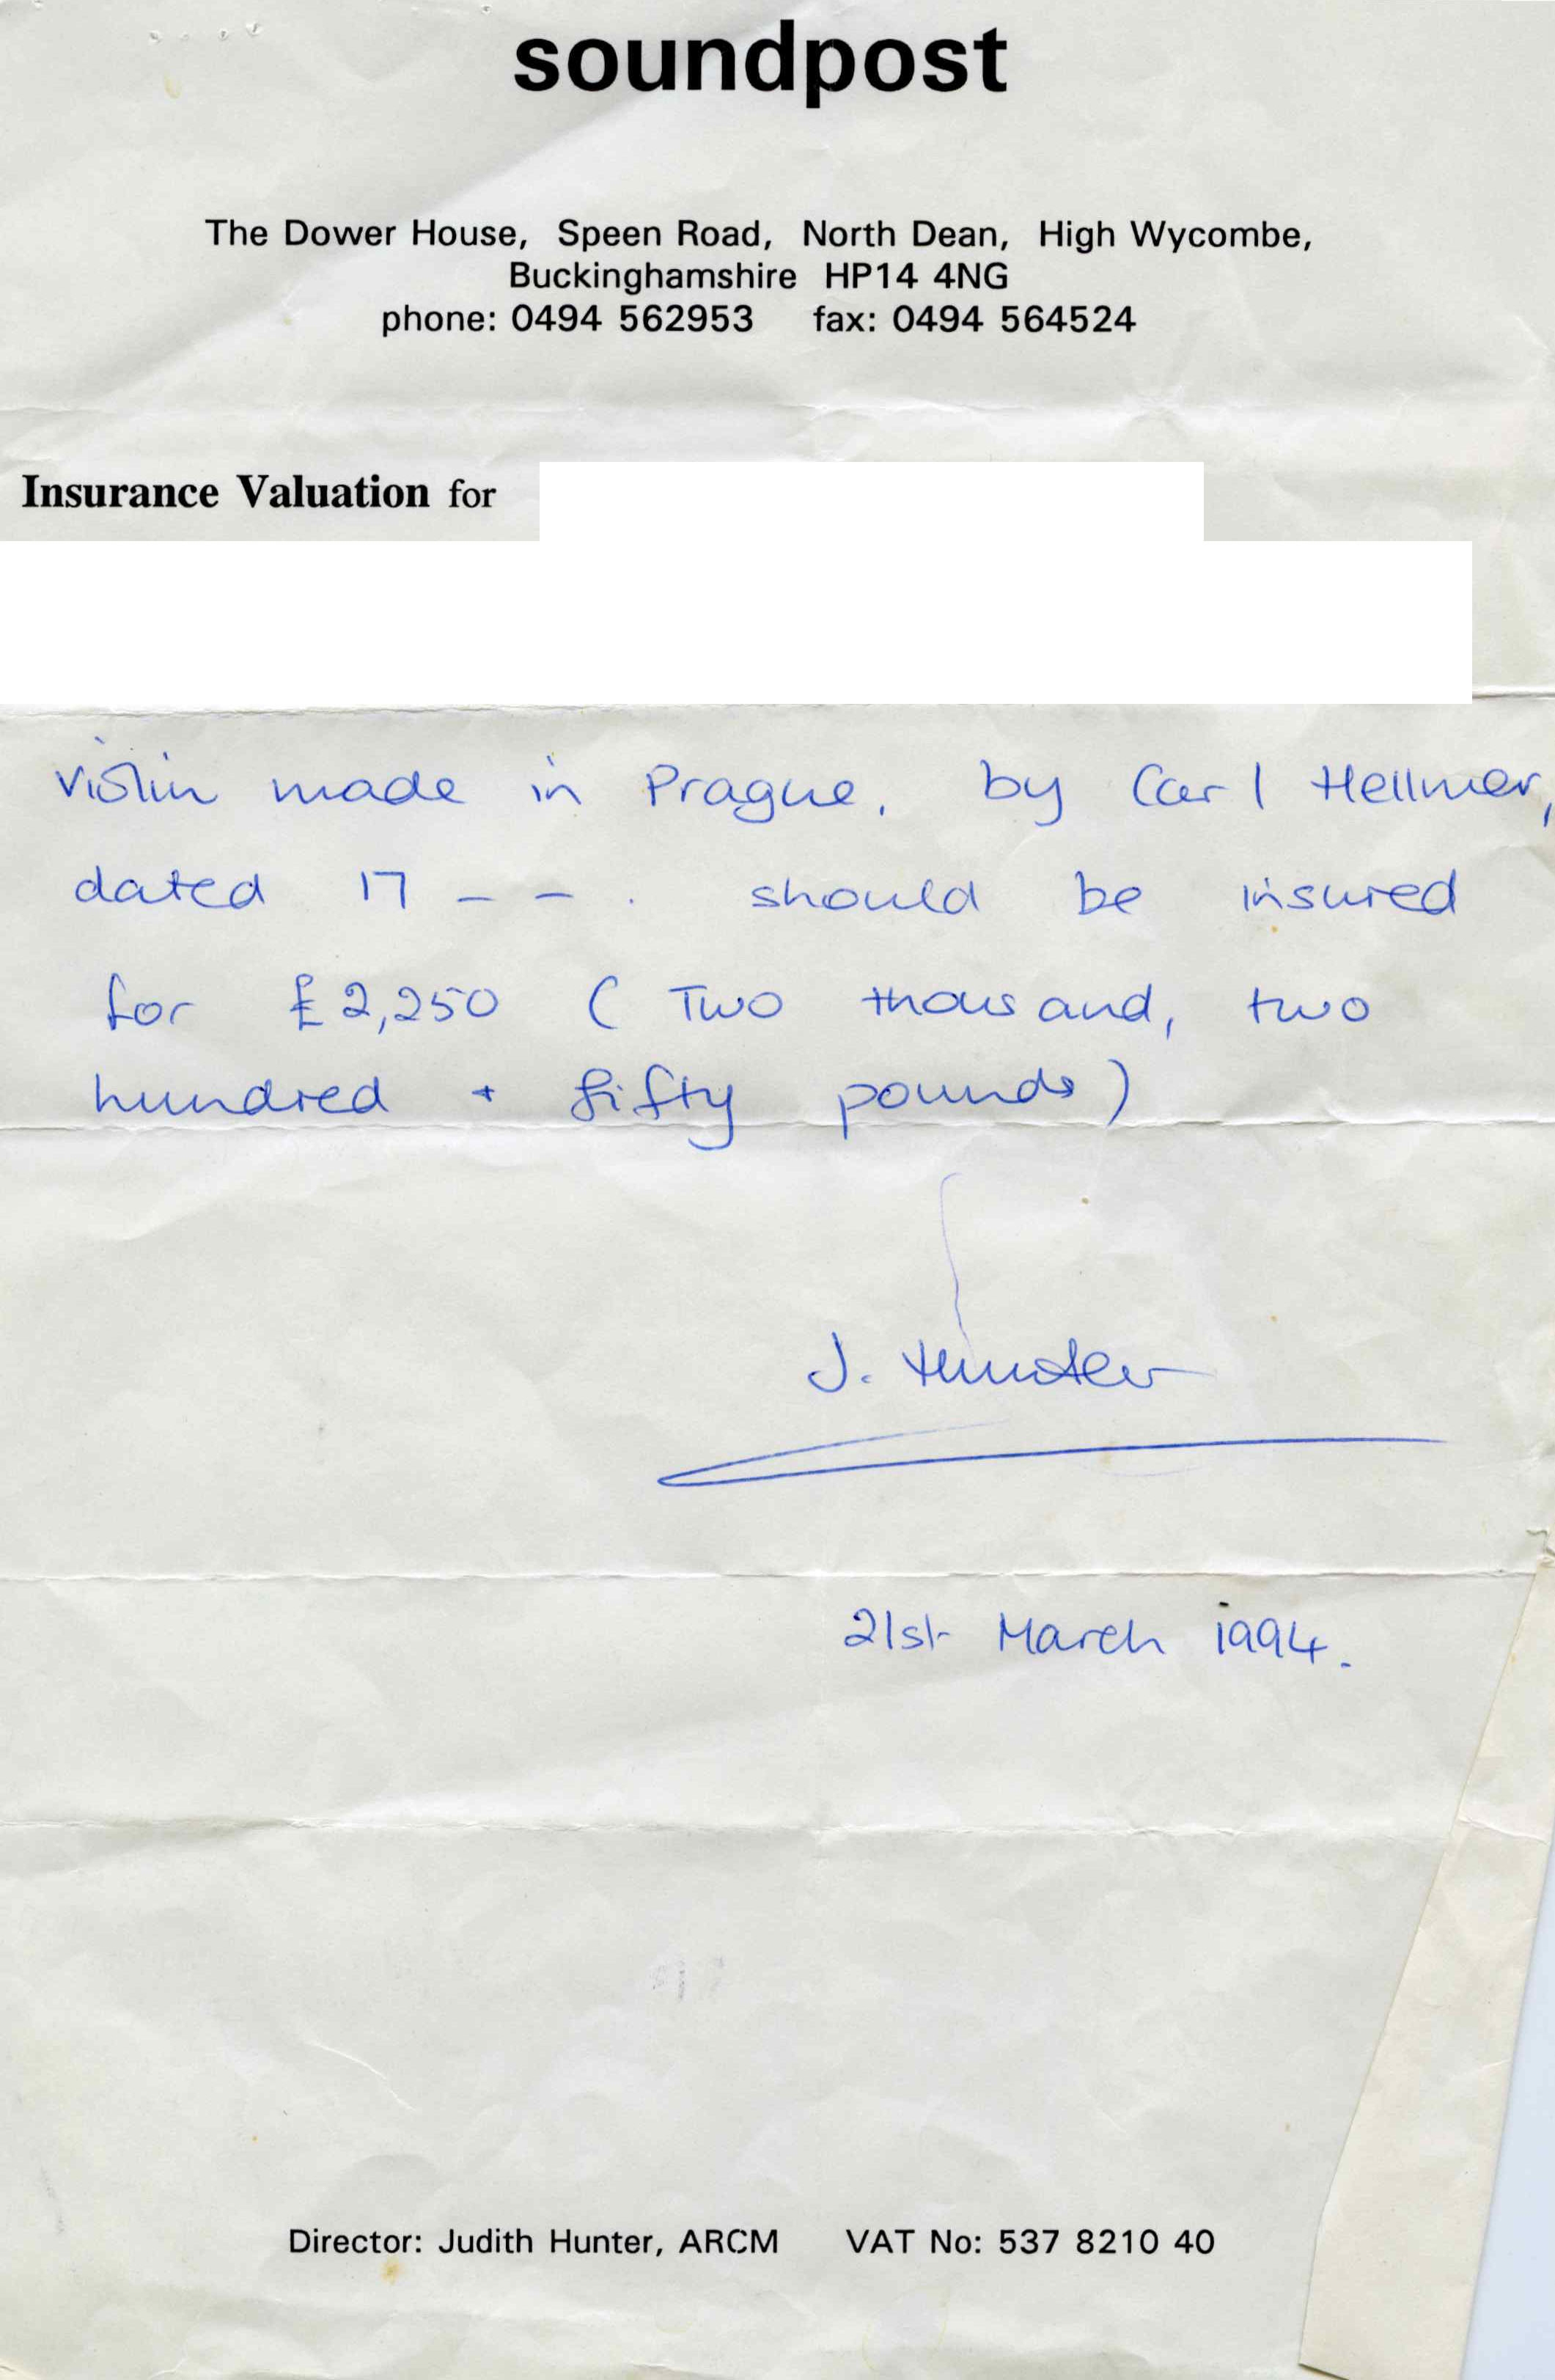 soundpost
The Dower House, Speen Road, North Dean, High Wycombe,
Buckinghamshire HP14 4NG
phone: 0494 562953 fax: 0494 564524
Insurance Valuation for
violin made in Prague. by Carl Hellmer,
dated 17 – – . should be insured
for £2,250 ( Two thousand, two
hundred + fifty pounds)
J. Hunter
21st March 1994.
Director: Judith Hunter, ARCM VAT No: 537 8210 40